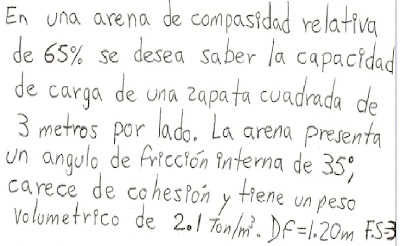 En una arena de compasidad relativa
de 65% se desea saber la capacidad
de carga de una zapata cuadrada de
3 metros por lado. La arena presenta
un angulo de fricción interna de 35°,
carece de cohesión y tiene un peso
volumetrico de 2.1 Ton/m³. Df=1.20m F.S=3